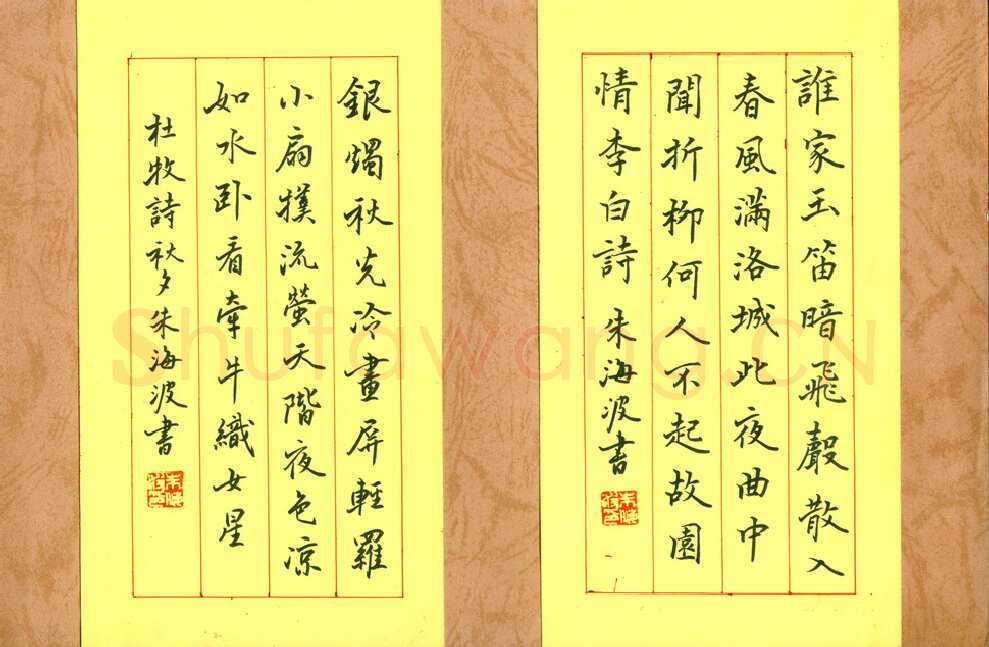 誰家玉笛暗飛聲散入
春風滿洛城此夜曲中
聞折柳何人不起故園
情李白詩 朱海波書
銀燭秋光冷畫屏輕羅
小扇撲流螢天階夜色凉
如水卧看牽牛織女星
杜牧詩秋夕朱海波書
Shufawang.CN